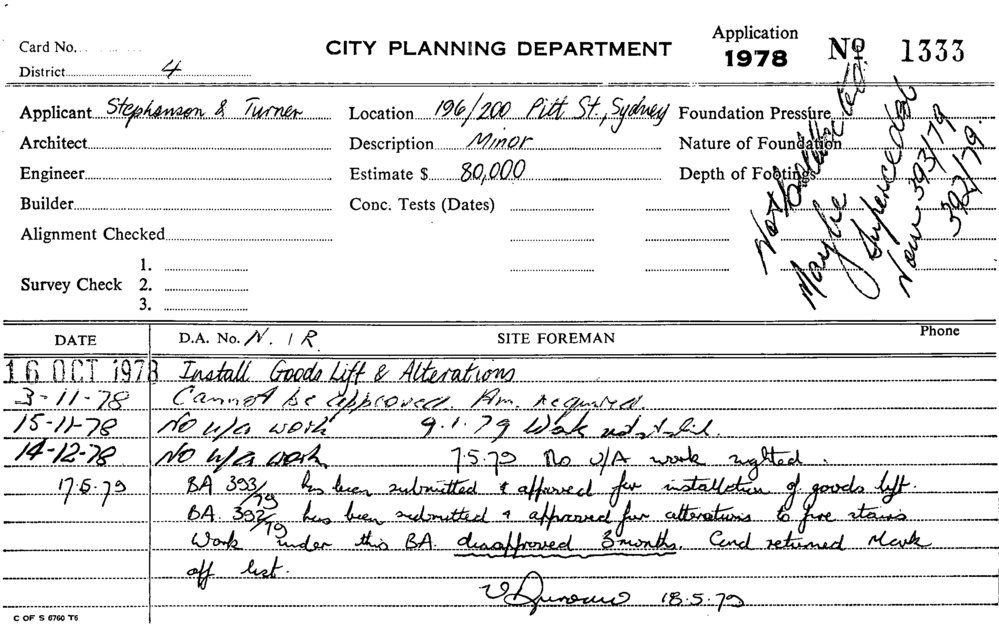 Card No.
CITY PLANNING DEPARTMENT
Application
1978 No 1333
District 4
Applicant Stephenson & Turner
Location 196/200 Pitt St., Sydney
Foundation Pressure
Architect
Description Minor
Nature of Foundation
Engineer
Estimate $ 80,000
Depth of Footings
Builder
Conc. Tests (Dates)
Alignment Checked
Survey Check
1.
2.
3.
Maybe
Superceded
Now 393/79
392/79.
DATE
D.A. No. N. I R.
SITE FOREMAN
Phone
16 OCT 1978 Install Goods Lift & Alterations
3-11-78 Cannot be approved. Am. required.
15-11-78 No u/a work 9.1.79 Work not
14-12-78 No u/a work 7.5.79 No U/A work sighted.
17.5.79 BA 393/79 has been submitted & approved for installation of goods lift.
BA. 392/79 has been submitted & approved for alterations to fire stairs
Work under this BA. disapproved 3 months. Card returned Mark
off list.
18.5.79
C OF S 6760 T6